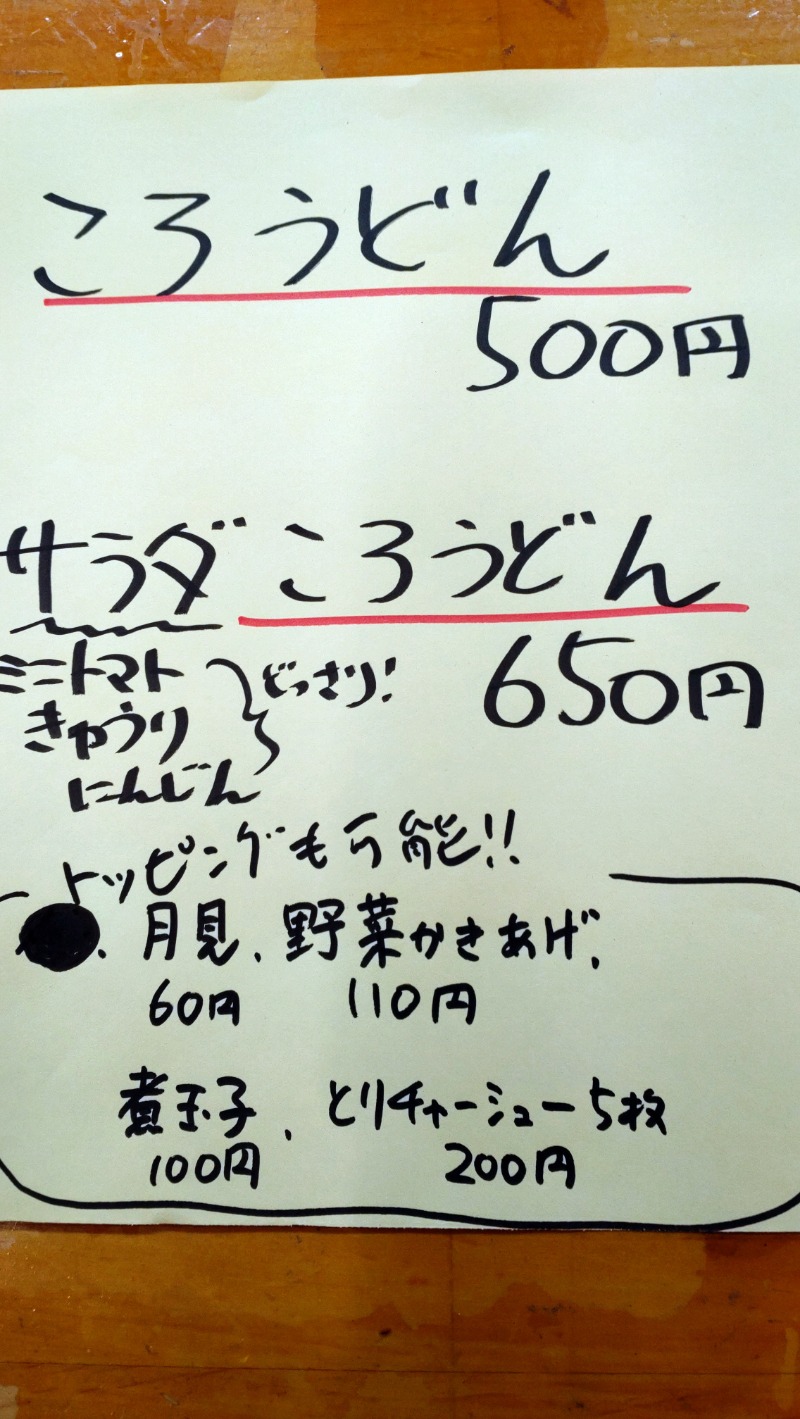 ころうどん
500円
サラダころうどん
650円
ミニトマト
きゅうり
にんじん
どっさり!
トッピングも可能!!
、月見、野菜かきあげ、
60円 110円
煮玉子、とりチャーシュー5枚
100円 200円